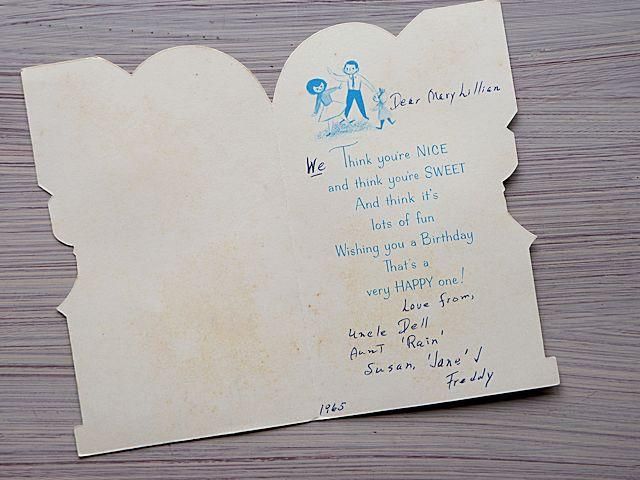 Dear Mary Lillian
We Think you're NICE
and think you're SWEET
And think it's
lots of fun
Wishing you a Birthday
That's a
very HAPPY one!
Love from,
Uncle Dell
Aunt 'Rain'
Susan, 'Jane' &
Freddy
1965